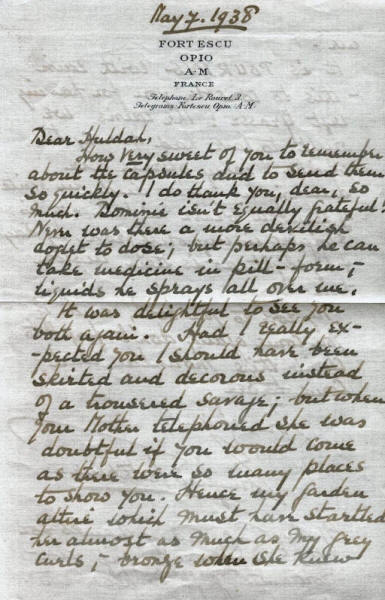 May 7. 1938
FORT ESCU
OPIO
A-M
FRANCE
Telephone Le Rouret 3
Telegrams Fortescu Opio A.M.
Dear Huldah,
How very sweet of you to remember
about the capsules and to send them
so quickly. I do thank you, dear, so
much. Dominie isn't equally grateful!
Never was there a more devilish
doglet to dose; but perhaps he can
take medicine in pill-form,-
liquids he sprays all over me.
It was delightful to see you
both again. Had I really ex-
-pected you I should have been
skirted and decorous instead
of a trousered savage; but when
your Mother telephoned she was
doubtful if you would come
as there were so many places
to show you. Hence my garden
attire which must have startled
her almost as much as my grey
curls,- bronze when she knew